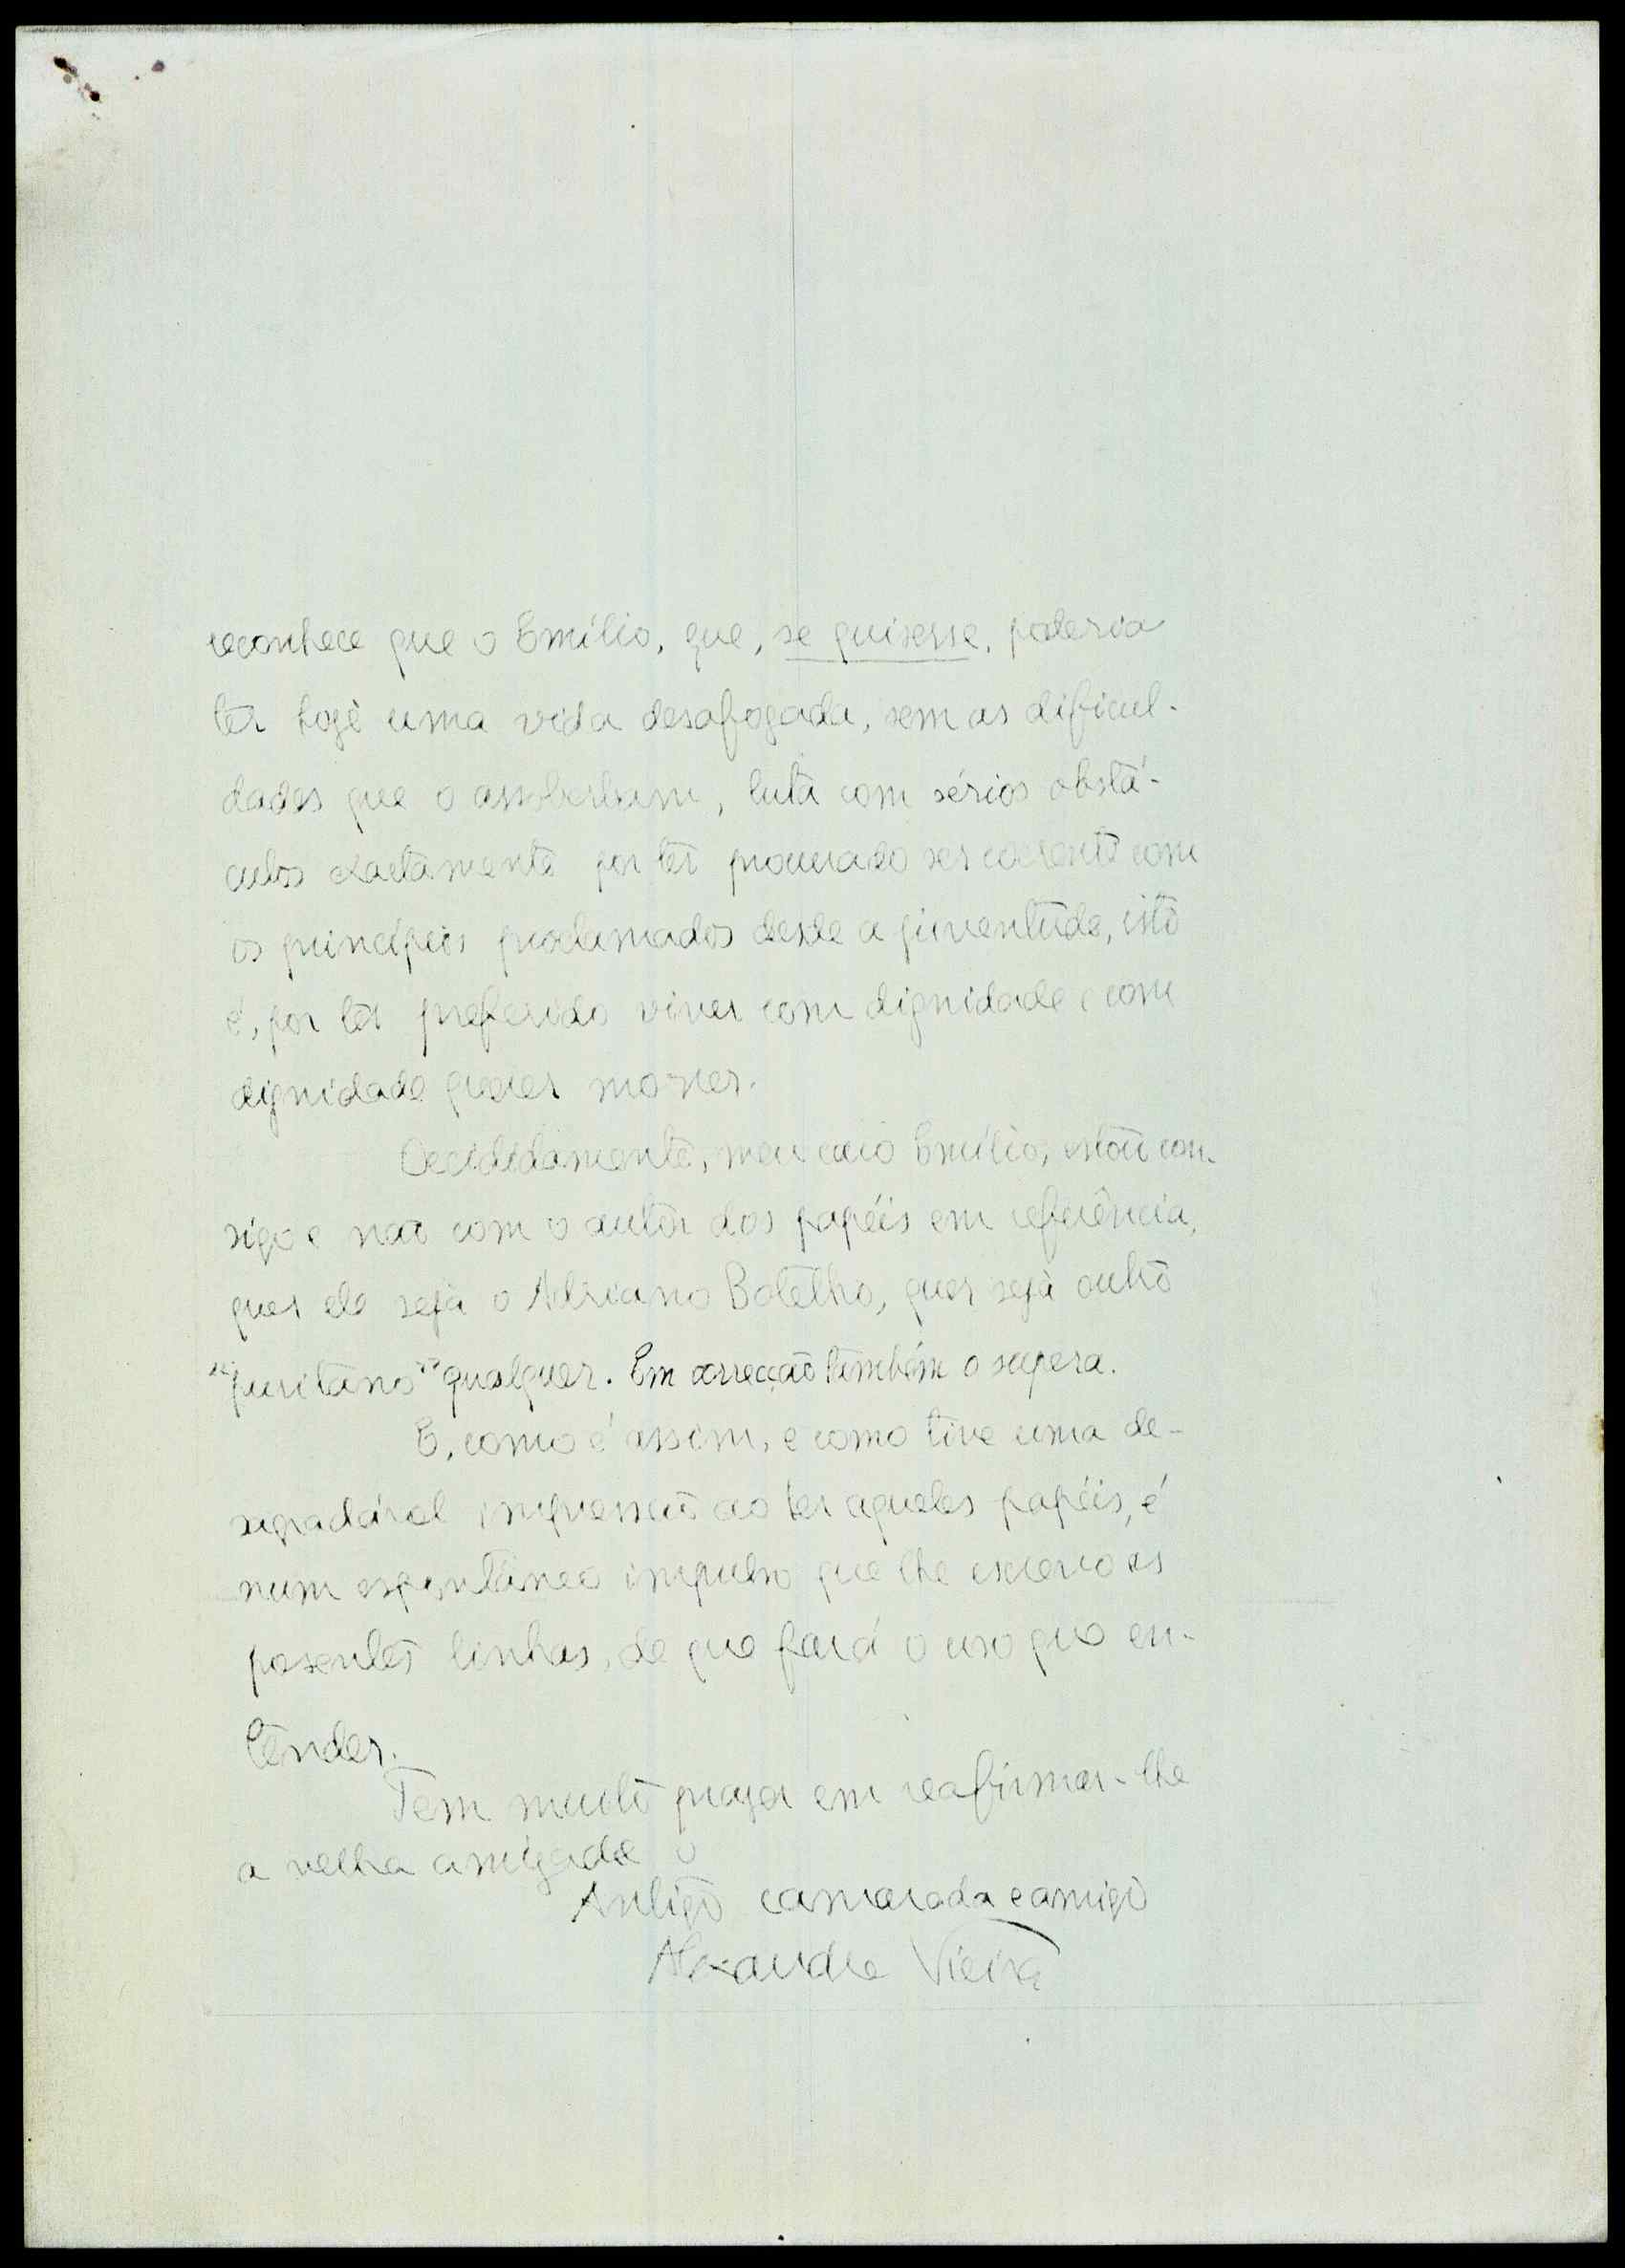 reconhece que o Emílio, que, se quisesse, poderia
ter hoje uma vida desafogada, sem as dificul-
dades que o assoberbam, luta com sérios obstá-
culos exactamente por ter procurado ser coerente com
os princípios proclamados desde a juventude, isto
é, por ter preferido viver com dignidade e com
dignidade querer morrer.
Decididamente, meu caro Emílio, estou con-
sigo e não com o autor dos papéis em referência,
quer ele seja o Adriano Botelho, quer seja outro
"puritano" qualquer. Em correcção também o supera.
E, como é assim, e como tive uma de-
sagradável impressão ao ler aqueles papéis, é
num espontâneo impulso que lhe escrevo as
presentes linhas, de que fará o uso que en-
tender.
Tem muito prazer em reafirmar-lhe
a velha amizade o
Antigo camarada e amigo
Alexandre Vieira